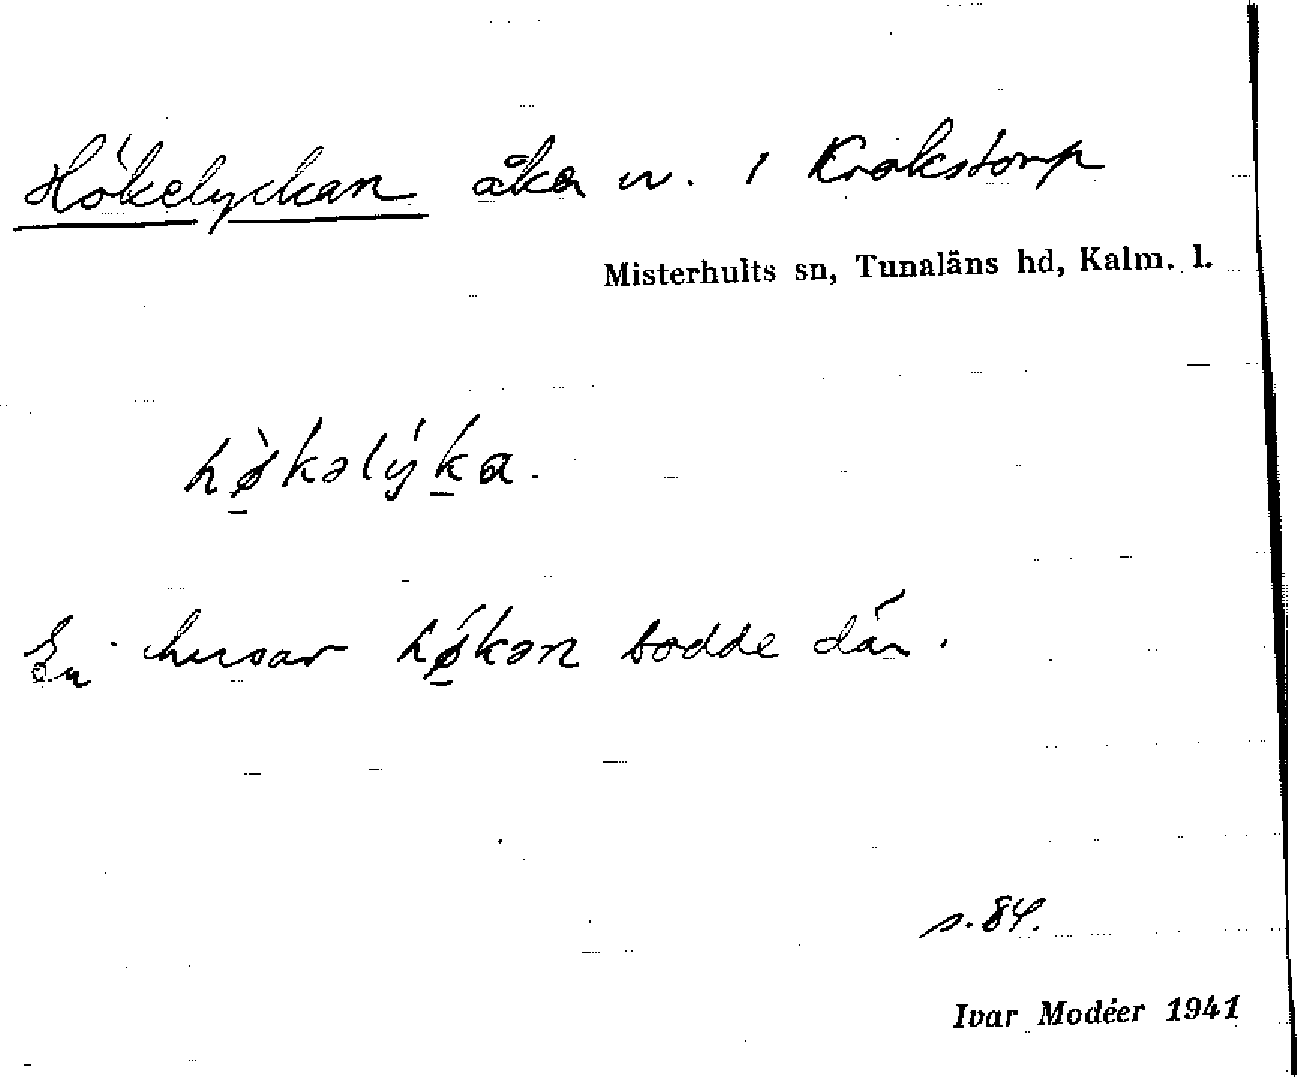 Hökelyckan åker nr. 1 Krokstorp
Misterhults sn, Tunaläns hd, Kalm. l.
hø̀kəlýka.
En husar hǿkən bodde där.
s. 84.
Ivar Modéer 1941